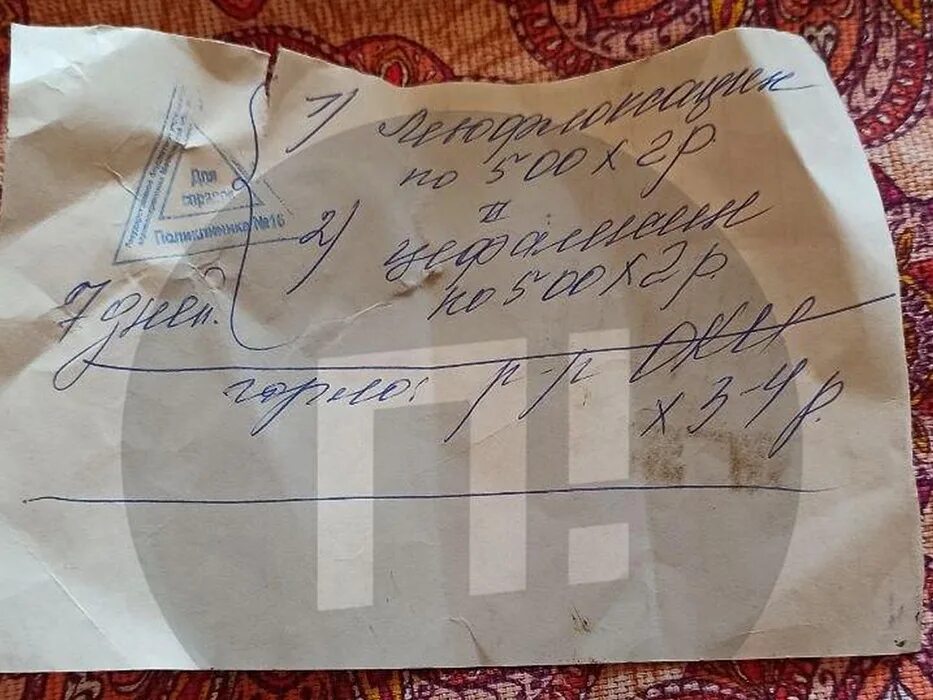 1) Левофлоксацин
по 500 х 2 р.
II
2) цефалексин
по 500 х 2 р.
7 дней.
горло: р-р ОКИ
х 3-4 р.
Для
справок
Поликлиника №16
П!